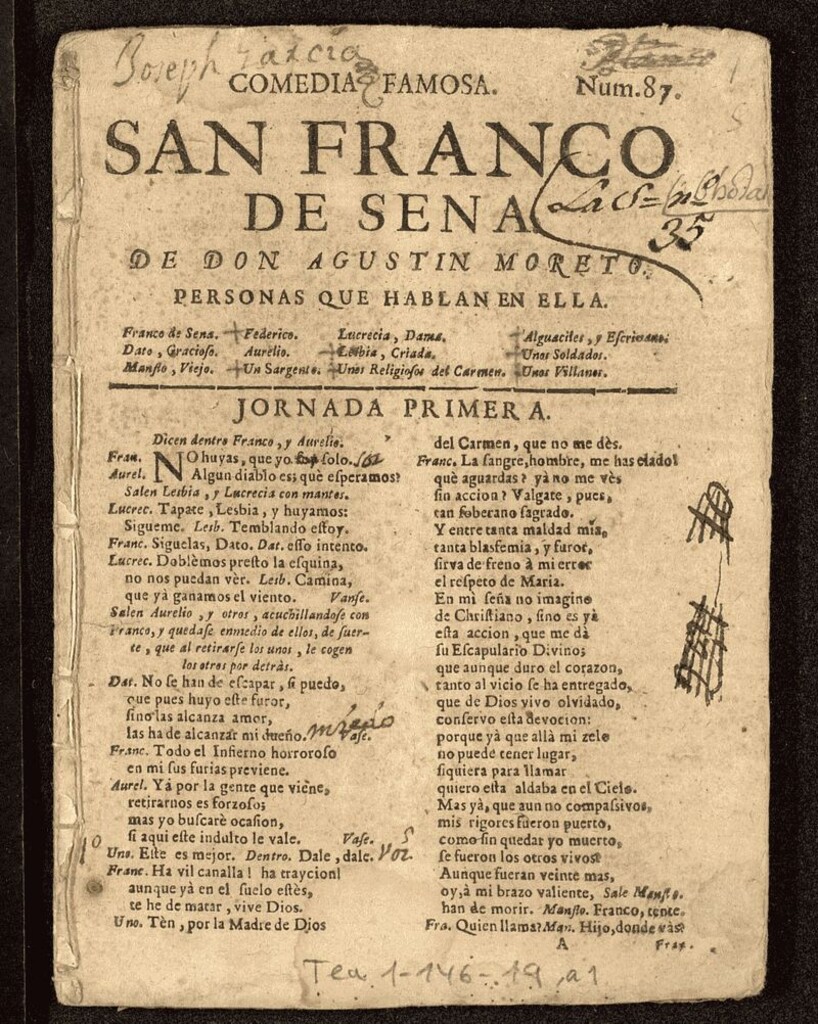 Joseph Garcia
COMEDIA FAMOSA. Num.87.
SAN FRANCO
DE SENA
35
DE DON AGUSTIN MORETO.
PERSONAS QUE HABLAN EN ELLA.
Franco de Sena. Federico. Lucrecia, Dama. Alguaciles, y Escrivano.
Dato, Gracioso. Aurelio. Lesbia, Criada. Unos Soldados.
Mansto, Viejo. Un Sargento. Unos Religiosos del Carmen. Unos Villanos.
JORNADA PRIMERA.
Dicen dentro Franco, y Aurelio.
Fran. NO huyas, que yo soy solo.
Aurel. Algun diablo es; què esperamos?
Salen Lesbia, y Lucrecia con mantos.
Lucrec. Tapate, Lesbia, y huyamos:
Sigueme. Lesb. Temblando estoy.
Franc. Siguelas, Dato. Dat. esso intento.
Lucrec. Doblèmos presto la esquina,
no nos puedan vèr. Lesb. Camina,
que yà ganamos el viento. Vanse.
Salen Aurelio, y otros, acuchillandose con
Franco, y quedase enmedio de ellos, de suer-
te, que al retirarse los unos, le cogen
los otros por detràs.
Dat. No se han de escapar, si puedo,
que pues huyo este furor,
sino las alcanza amor,
las ha de alcanzar mi dueño. Vase.
miedo
Franc. Todo el Infierno horroroso
en mi sus furias previene.
Aurel. Yá por la gente que viene,
retirarnos es forzoso;
mas yo buscarè ocasion,
si aqui este indulto le vale. Vase.
Uno. Este es mejor. Dentro. Dale, dale. Voz
Franc. Ha vil canalla! ha traycion!
aunque yà en el suelo estès,
te he de matar, vive Dios.
Uno. Tèn, por la Madre de Dios
del Carmen, que no me dès.
Franc. La sangre, hombre, me has elado!
què aguardas? yà no me vès
sin accion? Valgate, pues,
tan soberano sagrado.
Y entre tanta maldad mia,
tanta blasfemia, y furor,
sirva de freno à mi error
el respeto de Maria.
En mi seña no imagino
de Christiano, sino es yà
esta accion, que me dà
su Escapulario Divino;
que aunque duro el corazon,
tanto al vicio se ha entregado,
que de Dios vivo olvidado,
conservo esta devocion:
porque yà que allà mi zelo
no puede tener lugar,
siquiera para llamar
quiero esta aldaba en el Cielo.
Mas yà, que aun no compassivos,
mis rigores fueron puerto,
como sin quedar yo muerto,
se fueron los otros vivos?
Aunque fueran veinte mas,
oy, à mi brazo valiente, Sale Mansto.
han de morir. Mansto. Franco, tente.
Fra. Quien llama? Man. Hijo, donde vàs?
A Fra.
Tea 1-146-19, a1